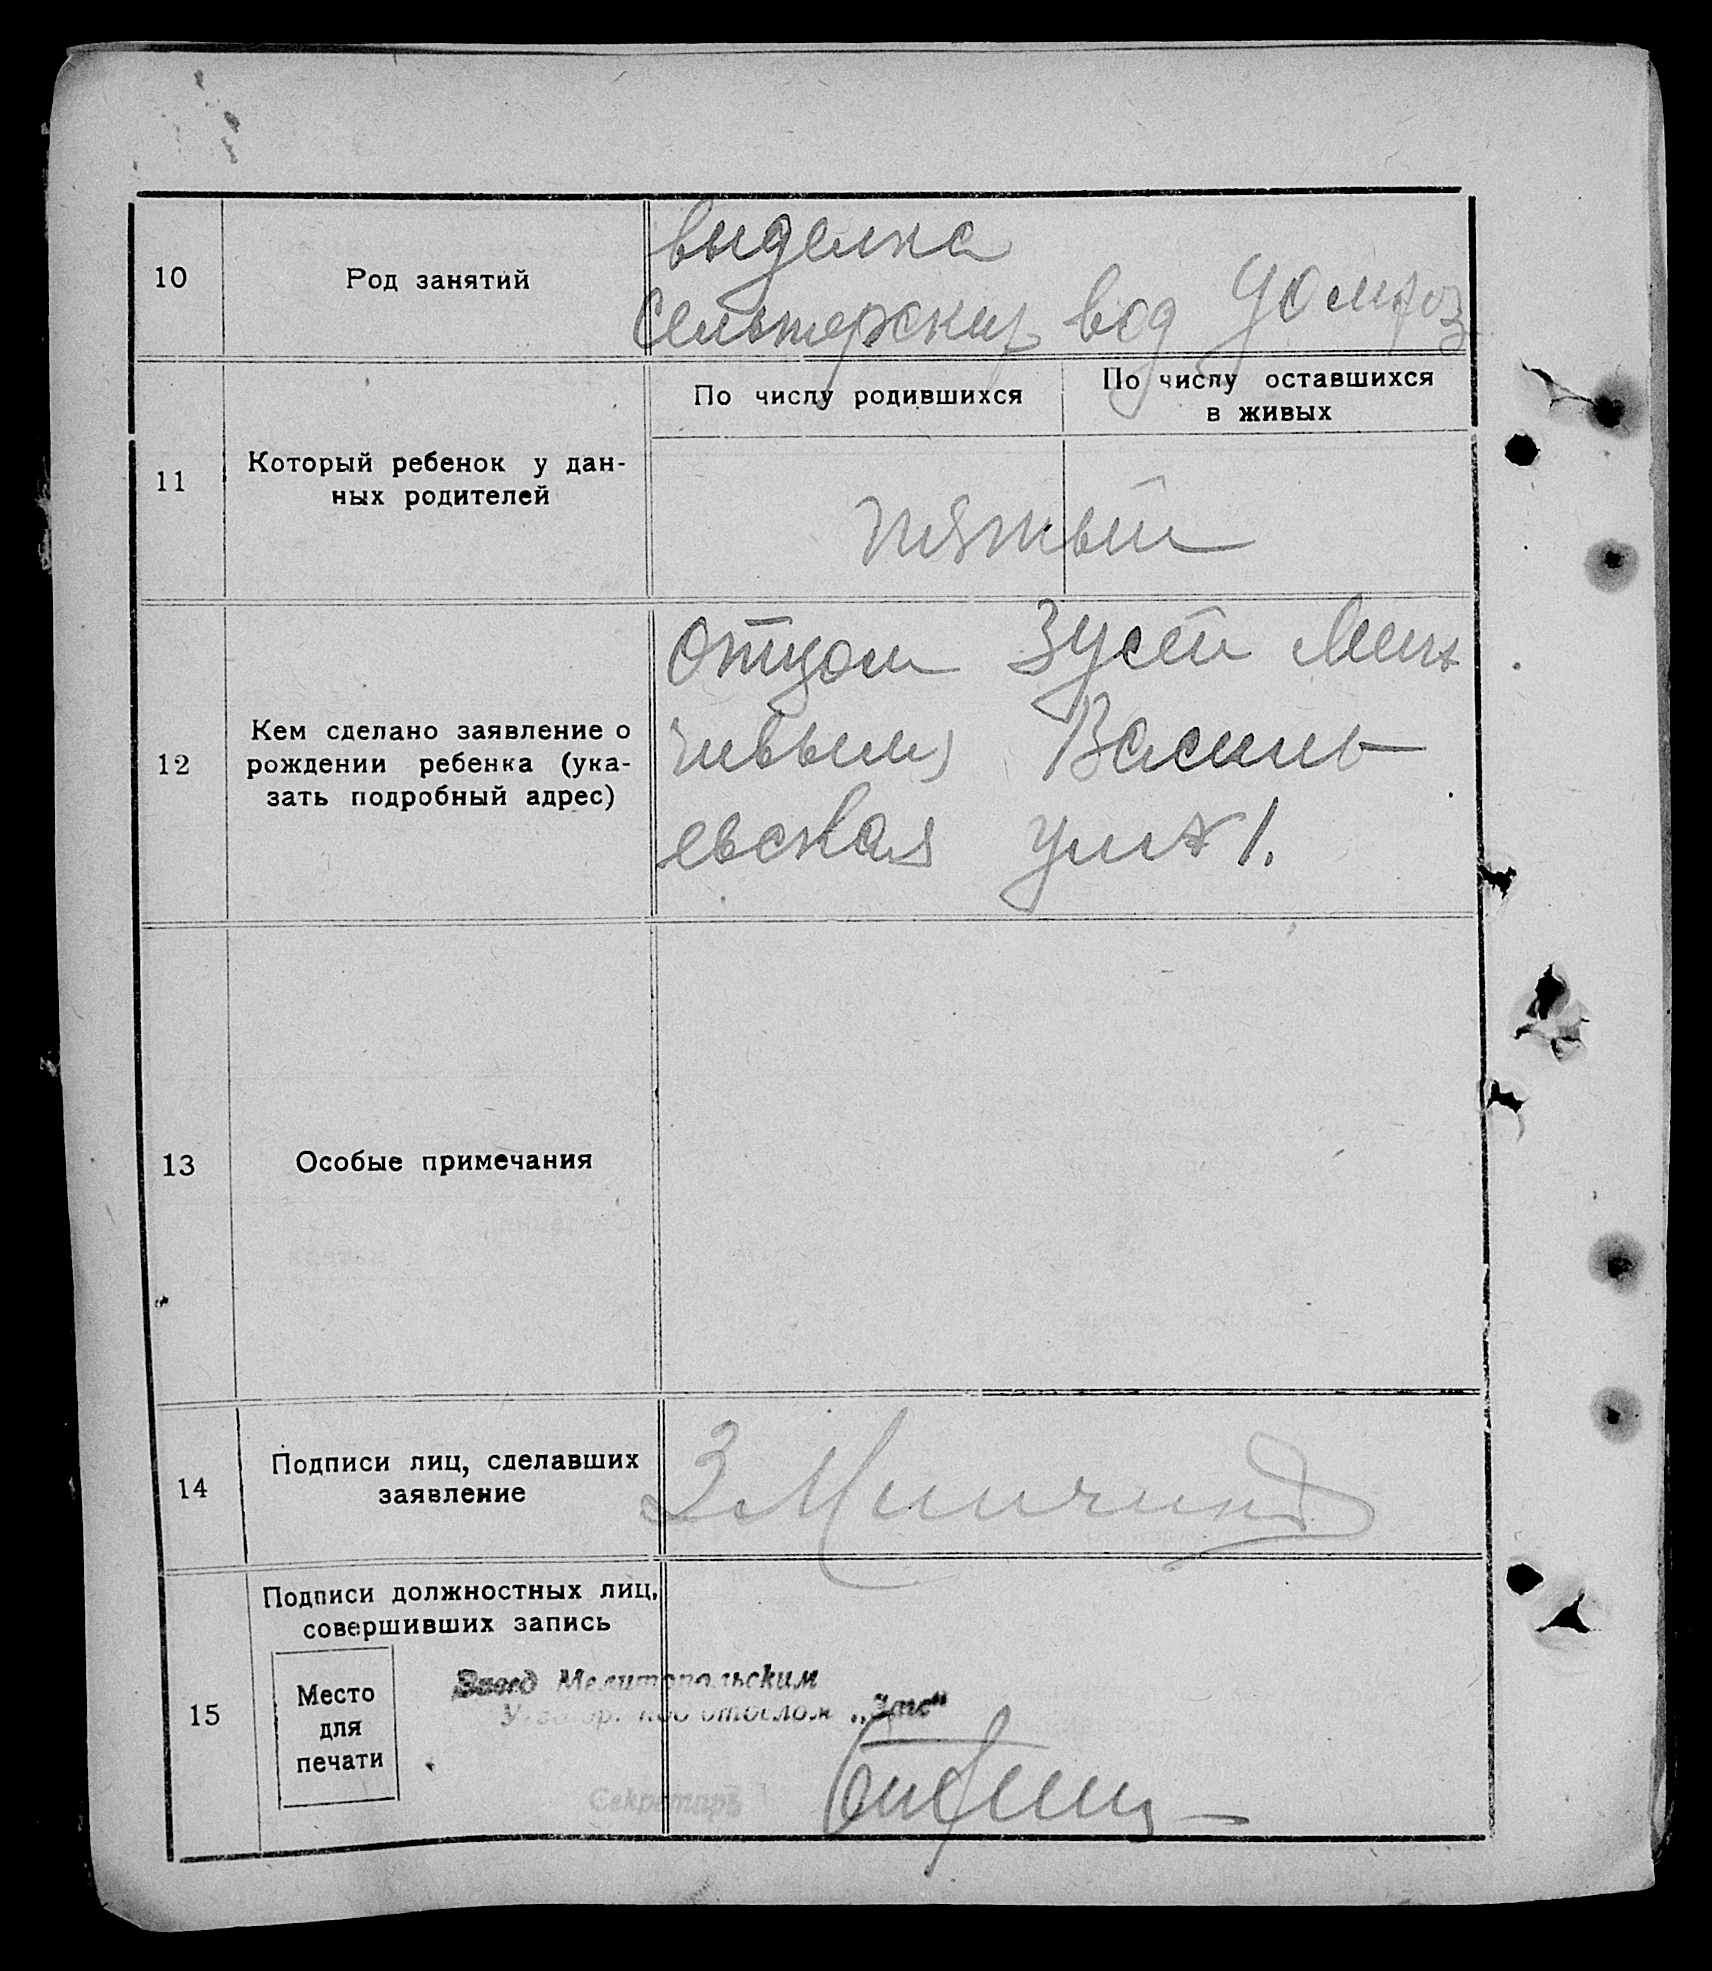 10
Род занятий
выделка
Сельтерских вод домхоз
11
Который ребенок у дан-
ных родителей
По числу родившихся
По числу оставшихся
в живых
пятый
12
Кем сделано заявление о
рождении ребенка (ука-
зать подробный адрес)
отцом Зусей
Василь
евская ул № 1.
13
Особые примечания
14
Подписи лиц, сделавших
заявление
З
15
Подписи должностных лиц,
совершивших запись
Место
для
печати
Завед Мелитопольским
отделом „Загс"
Секретарь